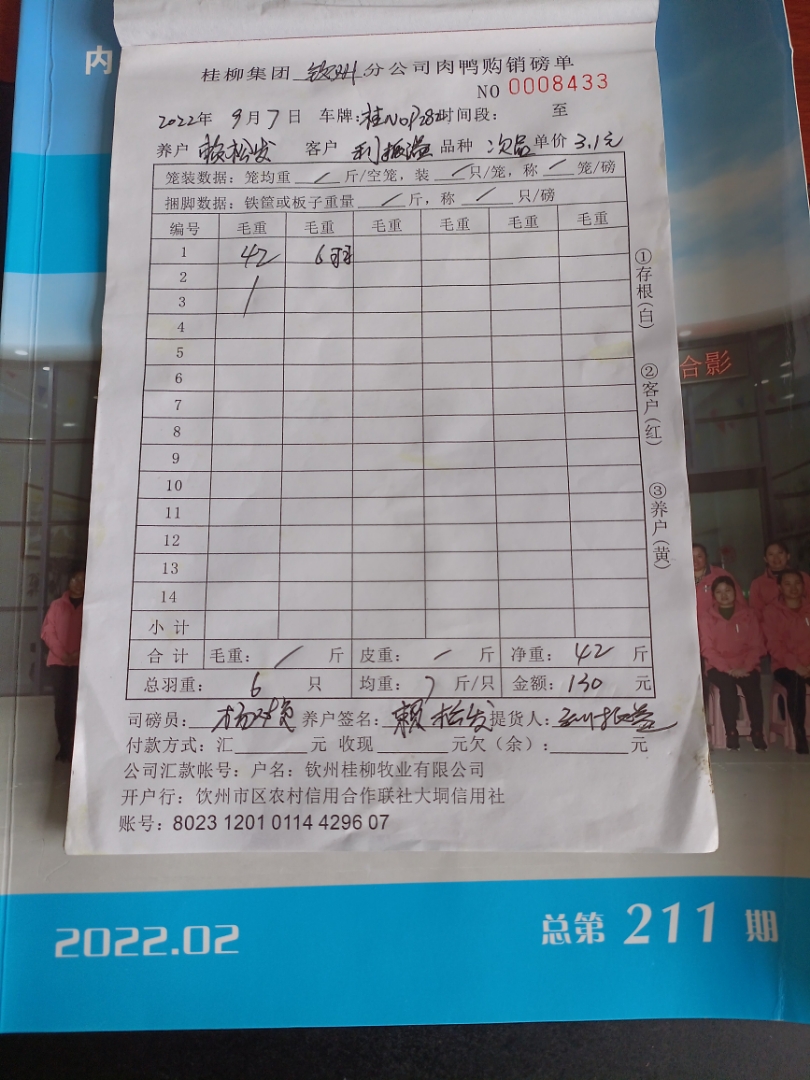 内
桂柳集团 钦州 分公司肉鸭购销磅单
NO 0008433
2022年 9月7日 车牌:桂N 时间段: 至
养户 赖松发 客户 利振益 品种 次品 单价 3.1元
笼装数据:笼均重 / 斤/空笼,装 / 只/笼,称 / 笼/磅
捆脚数据:铁筐或板子重量 / 斤,称 / 只/磅
编号 毛重 毛重 毛重 毛重 毛重 毛重
1 42 6羽
2
3
4
5
6
7
8
9
10
11
12
13
14
小计
合计 毛重: / 斤 皮重: / 斤 净重: 42 斤
总羽重: 6 只 均重: 7 斤/只 金额: 130 元
司磅员: 养户签名: 赖松发 提货人: 利振益
付款方式:汇 元 收现 元欠(余): 元
公司汇款帐号:户名:钦州桂柳牧业有限公司
开户行:饮州市区农村信用合作联社大垌信用社
账号:8023 1201 0114 4296 07
①存根(白)
②客户(红)
③养户(黄)
合影
2022.02
总第 211 期